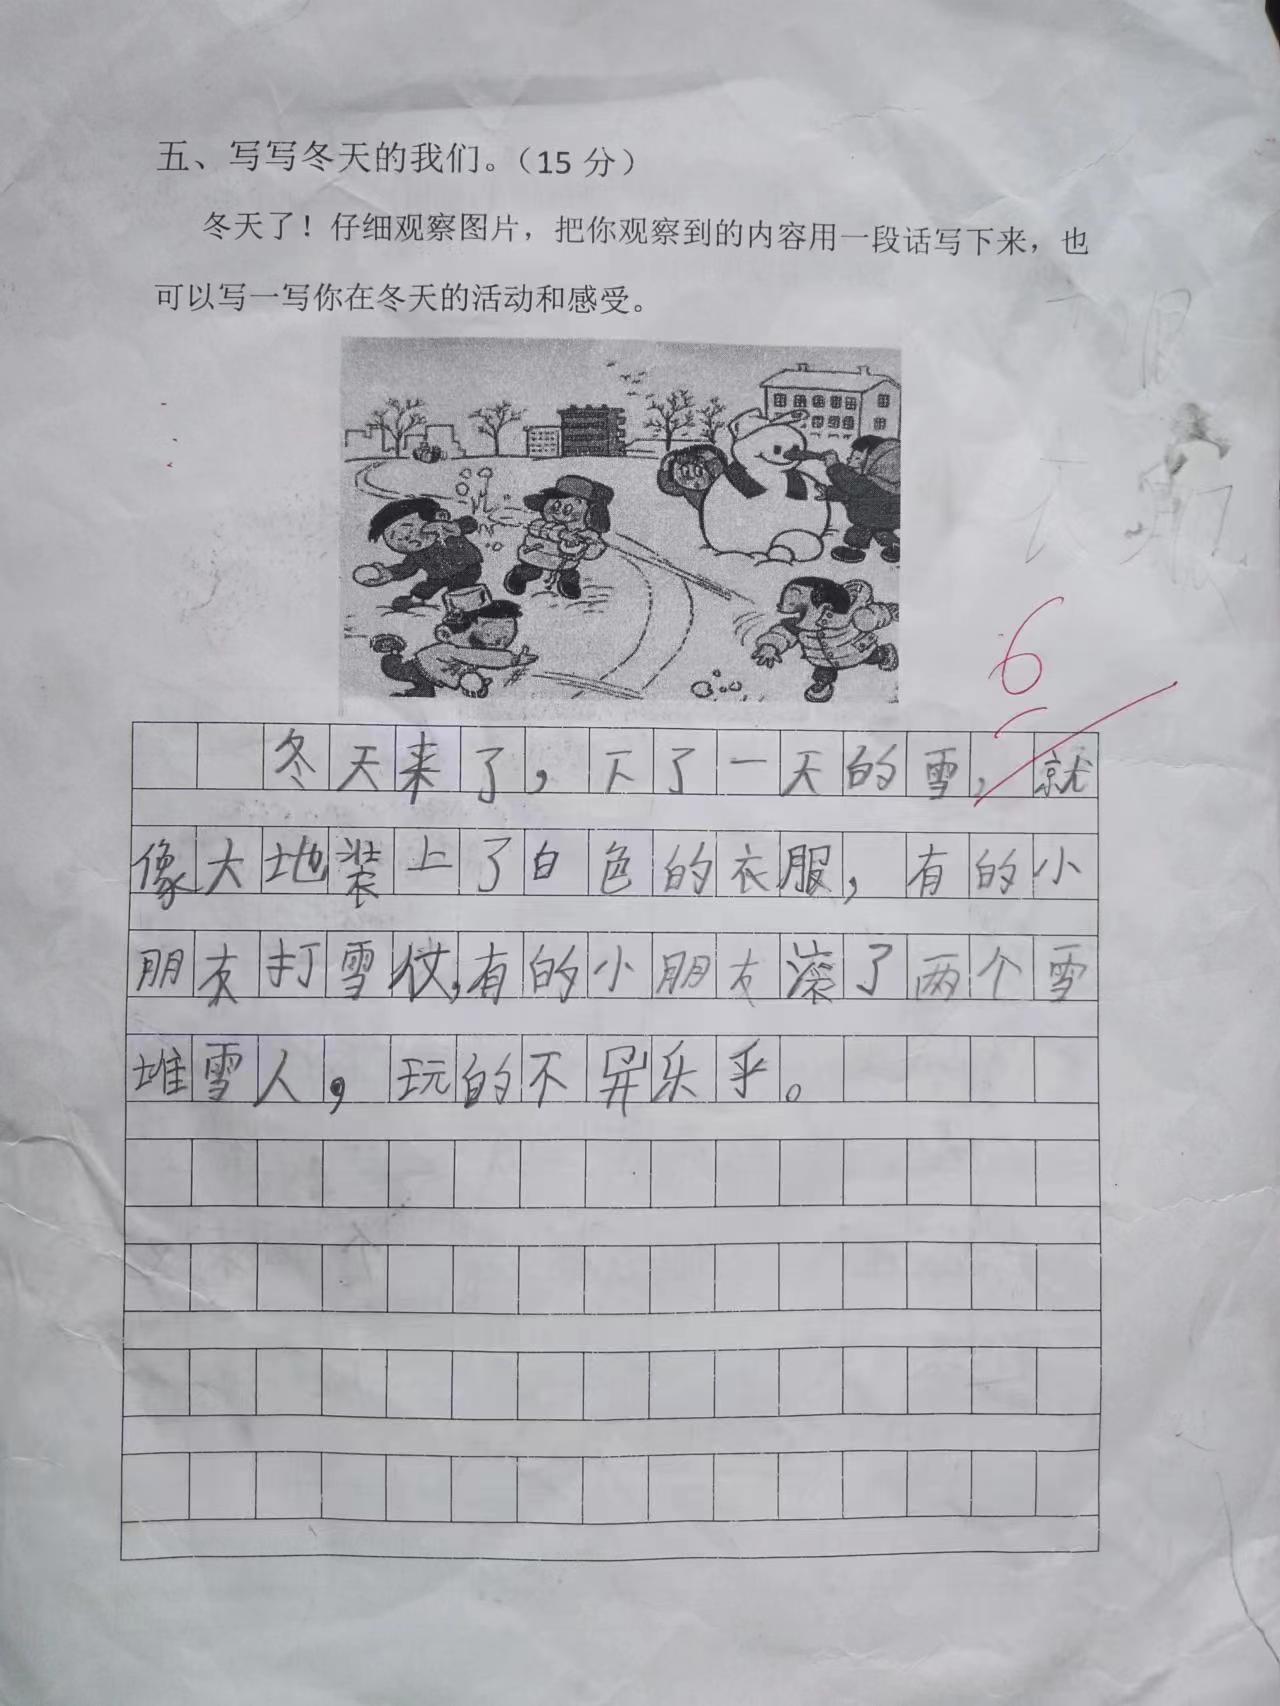 五、写写冬天的我们。（15 分）
冬天了！仔细观察图片，把你观察到的内容用一段话写下来，也
可以写一写你在冬天的活动和感受。
6
冬天来了，下了一天的雪，就
像大地装上了白色的衣服，有的小
朋友打雪仗，有的小朋友滚了两个雪
堆雪人，玩的不异乐乎。